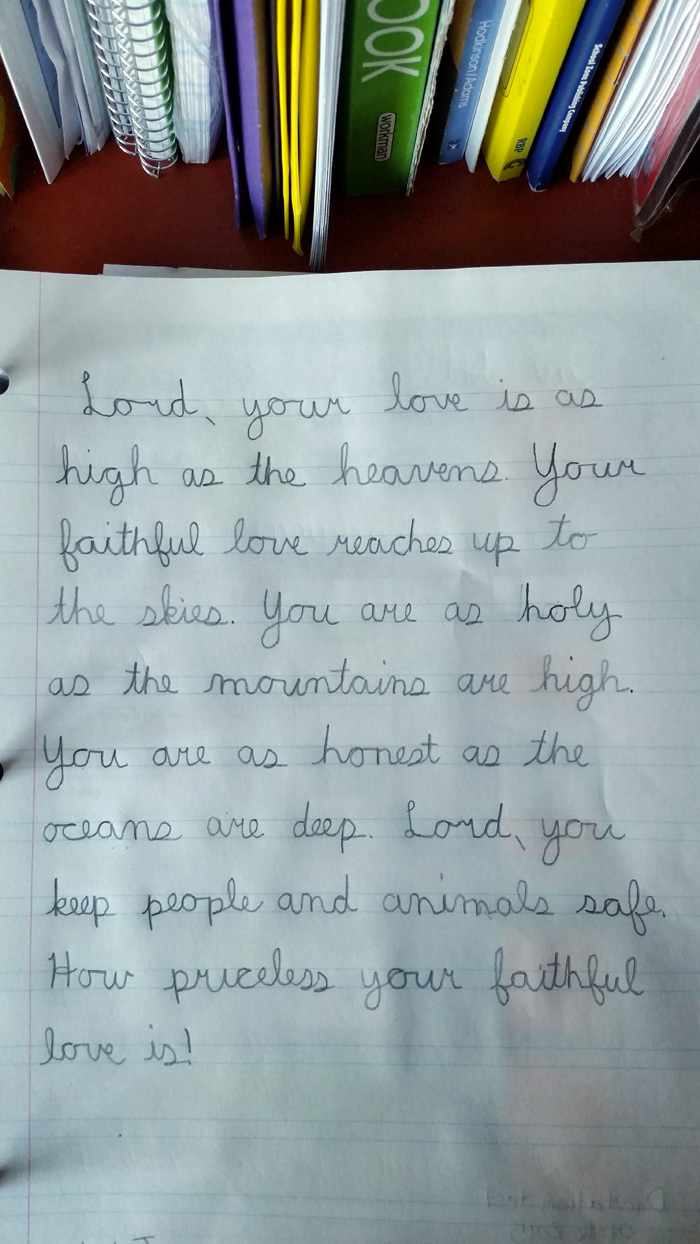 OOK
workman
Hodkinson/Adams
RBP
School Zone Publishing Company
Lord, your love is as
high as the heavens. Your
faithful love reaches up to
the skies. You are as holy
as the mountains are high.
You are as honest as the
oceans are deep. Lord, you
keep people and animals safe.
How priceless your faithful
love is!